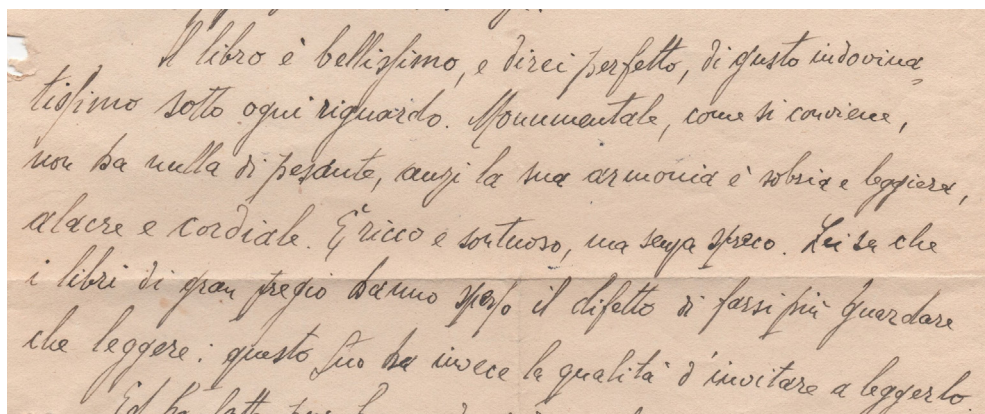 Il libro è bellissimo, e direi perfetto, di gusto indovina-
tissimo sotto ogni riguardo. Monumentale, come si conviene,
non ha nulla di pesante, anzi la sua armonia è sobria e leggiera,
alacre e cordiale. È ricco e sontuoso, ma senza spreco. Lei sa che
i libri di gran pregio hanno spesso il difetto di farsi più guardare
che leggere: questo Suo ha invece la qualità d'invitare a leggerlo.
Ed ha fatto